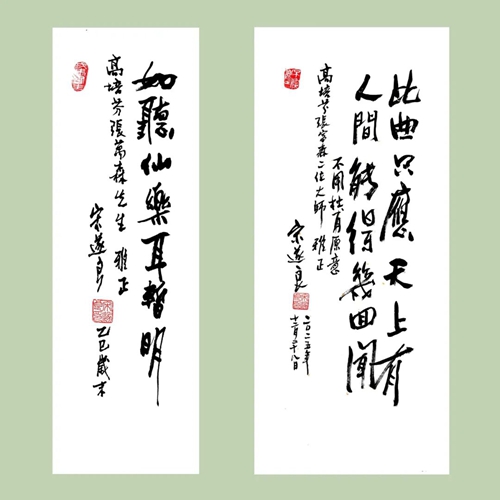 此曲只應天上有
人間能得幾回聞
不用杜甫原意
高培芬張萬森二位大師 雅正
宋遂良
二〇二五年
如聽仙樂耳暫明
高培芬張萬森先生 雅正
宋遂良
乙巳歲末